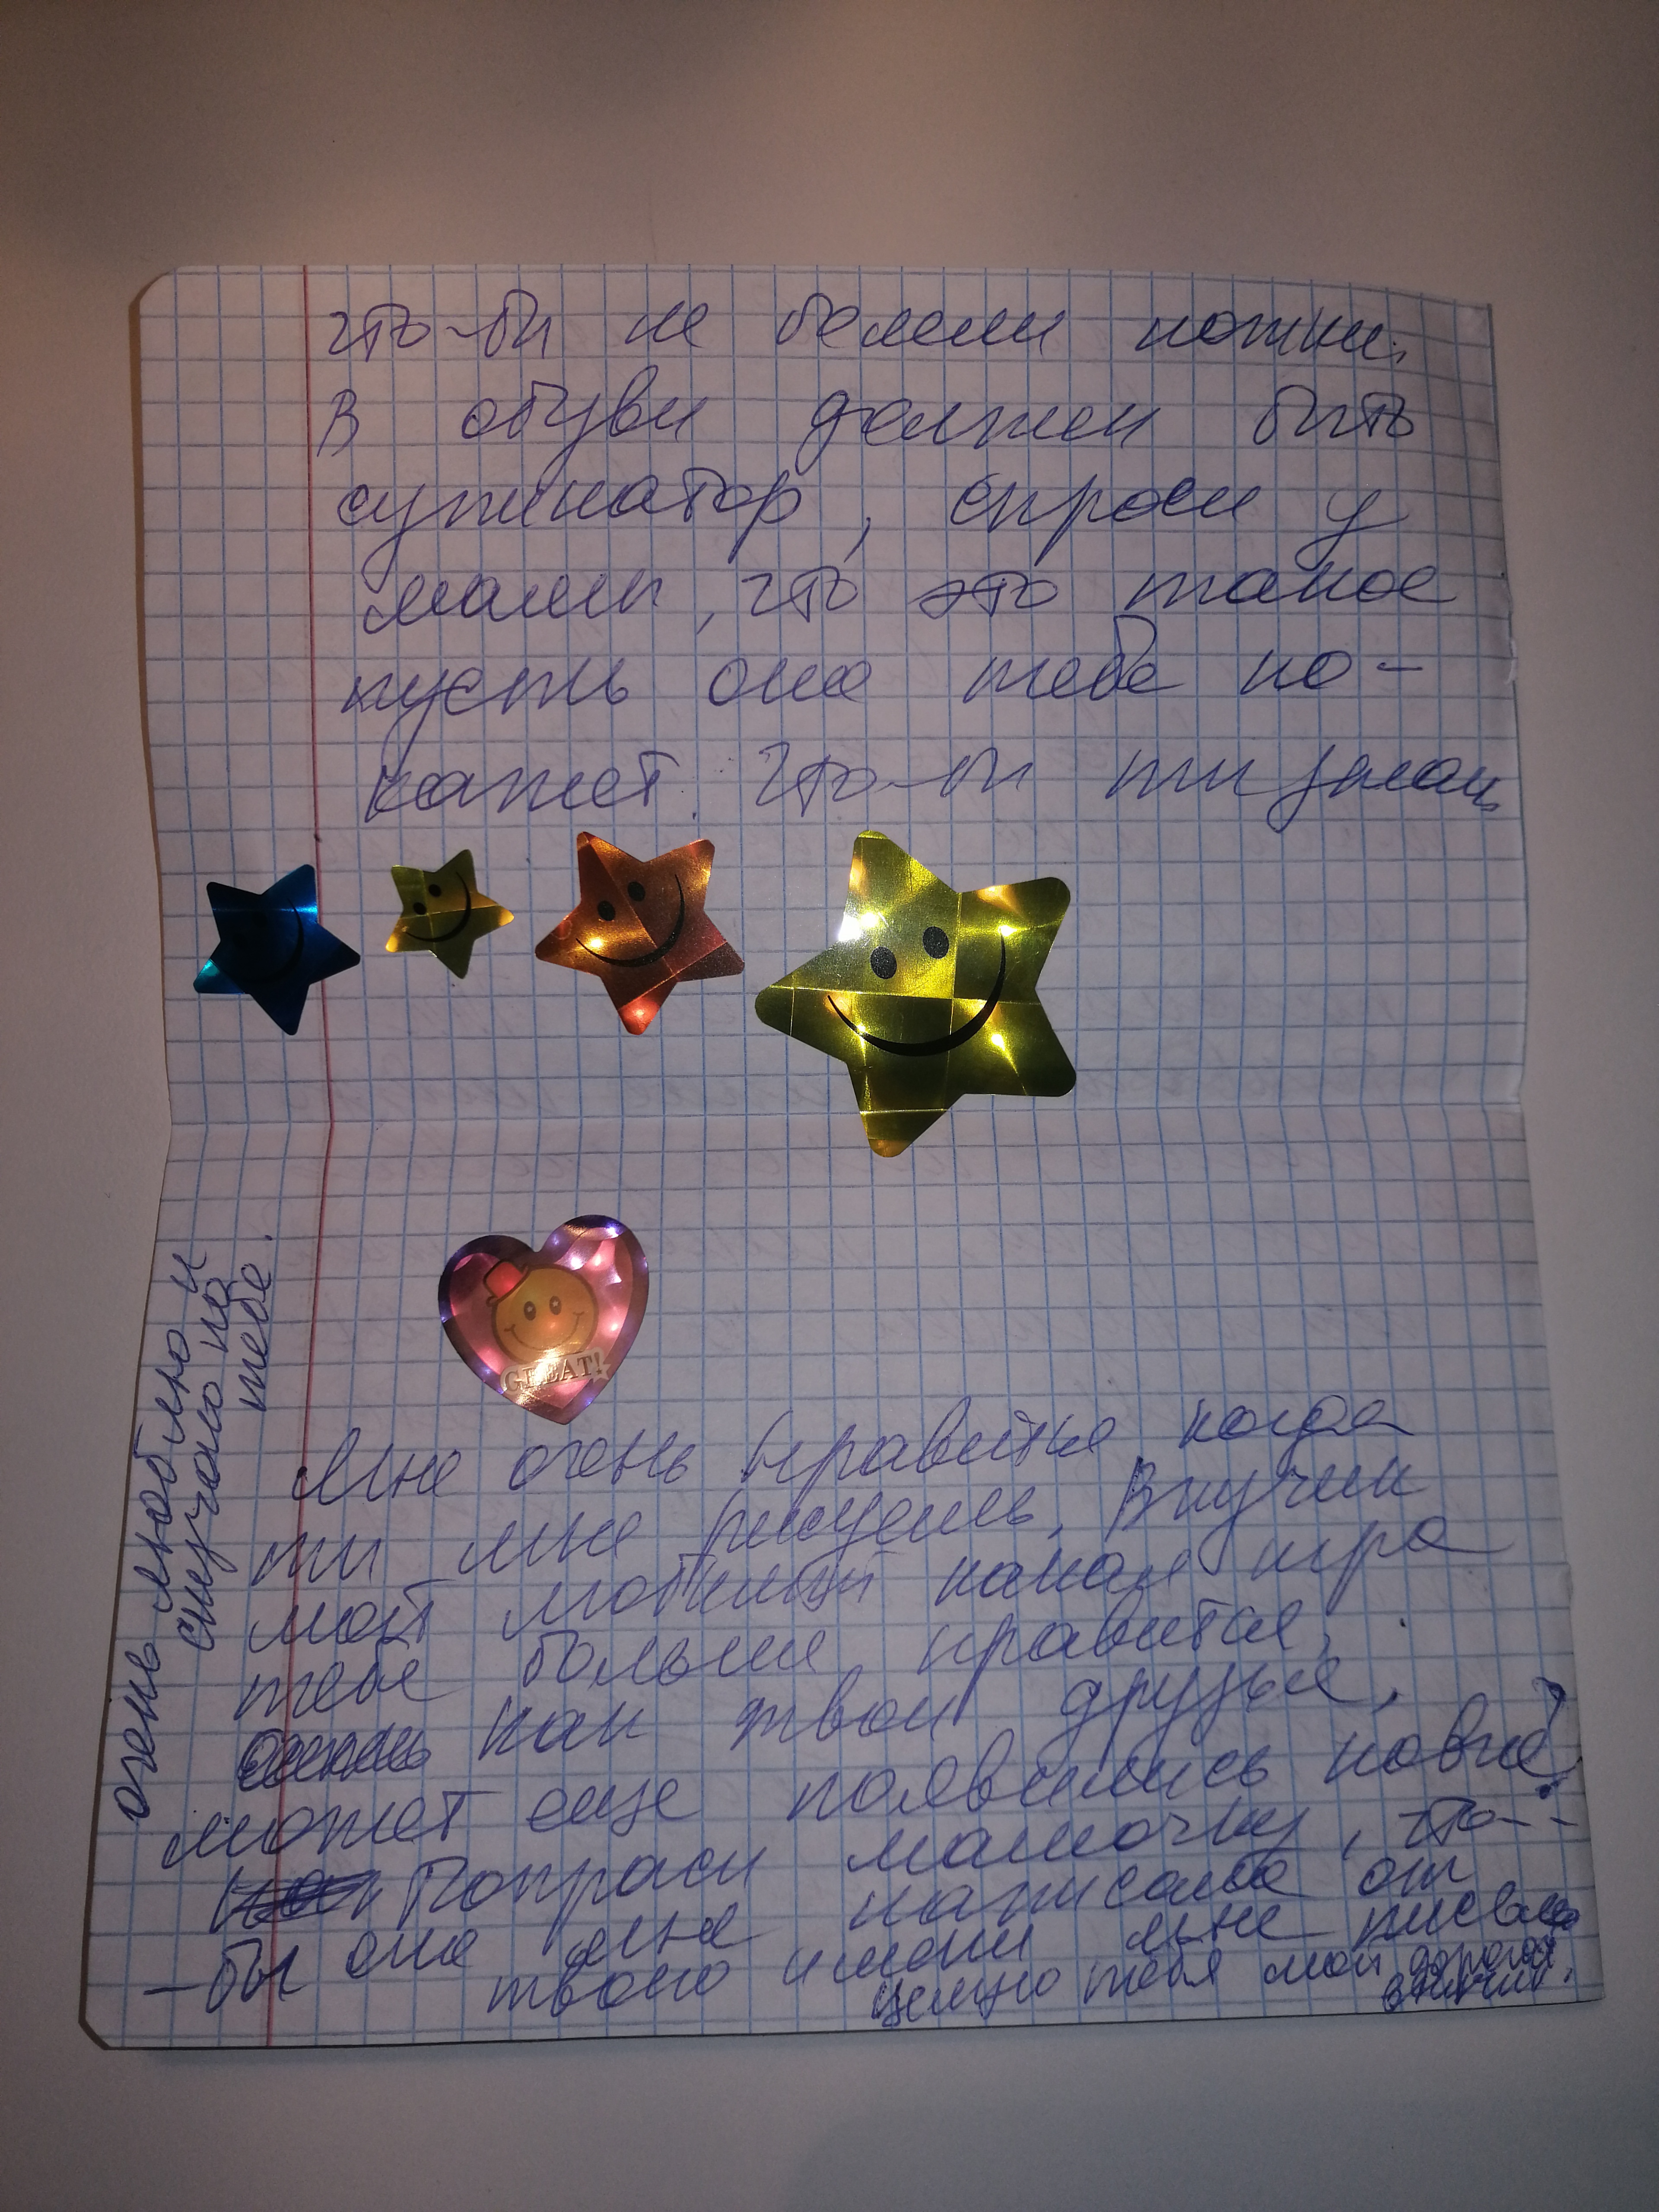 что-бы не болели ножки.
В обуви должен быть
супинатор, спроси у
мамы, что это такое
пусть она тебе по-
кажет. что-бы ты знал
GREAT!
Мне очень нравится когда
ты мне рисуешь. Внучик
мой любимый какая игра
тебе больше нравится,
как твои друзья,
может еще появились новые?
Попроси мамочку, что-
-бы она мне написала от
твоего имени мне письмо
целую тебя мой дорогой
внучик.
очень люблю и
скучаю по
тебе.